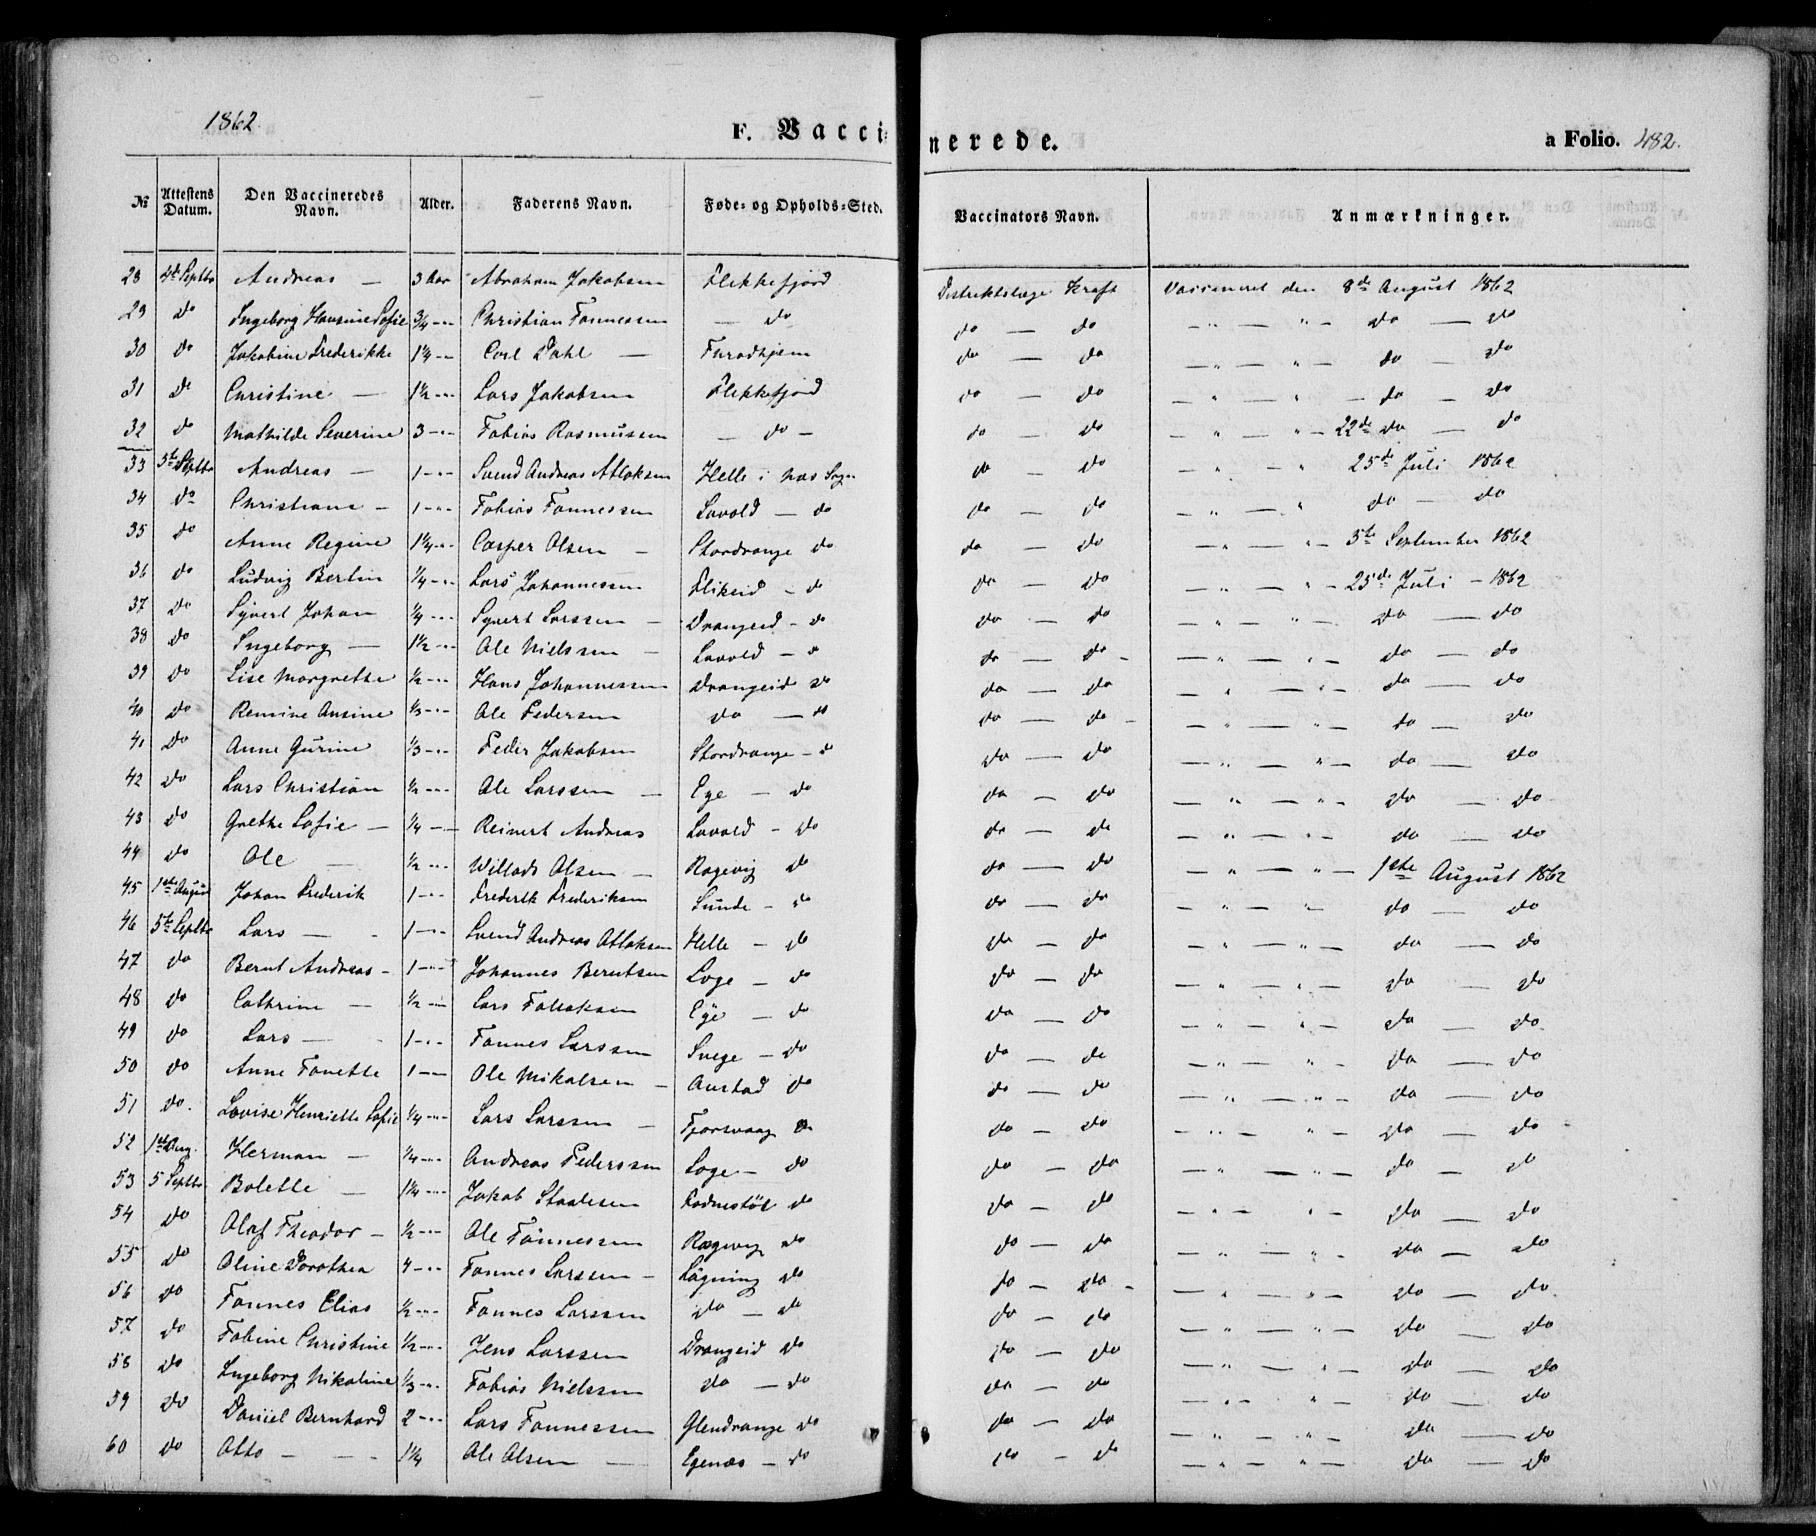 1862.
F. Vaccinerede.
a Folio. 482.
№ Attestens Datum. Den Vaccineredes Navn. Alder. Faderens Navn. Føde- og Opholds-Sted. Vaccinators Navn. Anmærkninger.
28 4de Septbr Andreas — 3 Aar Abraham Jakobsen Flekkefjord Distriktslæge Kraft Vaccineret den 8de August 1862
29 do Ingeborg Hansine Sofie 3/4 -"- Christian Tønnessen — do do — do — " — " — do — do
30 do Jakobine Frederikke 1 1/4 -"- Carl Dahl — Trondhjem do — do — " — " — do — do
31 do Christine — 1 1/2 -"- Lars Jakobsen Flekkefjord do — do — " — " — do — do
32 do Mathilde Severine 3 -"- Tobias Rasmussen — do — do — do — " — " — 22de do — do
33 5te Septbr Andreas — 1 -"- Svend Andreas Atlaksen Helle i Næs Sogn do — do — " — " 25de Juli 1862
34 do Christiane — 1 -"- Tobias Tønnessen Lavold — do do — do — " — " do — do
35 do Anne Regine 1 1/4 -"- Casper Olsen — Stordrange do do — do — " — " — 5te September 1862
36 do Ludvig Bertin 1/4 -"- Lars Johannessen Flikeid — do do — do — " — " — 25de Juli — 1862
37 do Syvert Johan 1/4 -"- Syvert Larssen — Drangeid — do do — do — " — " — do — do
38 do Ingeborg — 1 1/2 -"- Ole Nielssen — Lavold — do do — do — — " — " — do — do
39 do Lise Margrethe 1/2 -"- Hans Johannessen Drangeid do do — do — " — " — do — do
40 do Remine Ansine 1/3 -"- Ole Pedersen do — do do — do — — " — " — do — do
41 do Anne Gurine 1/3 -"- Peder Jakobsen Stordrange — do do — do — " — " — do — do
42 do Lars Christian 1/2 -"- Ole Larssen — Ege — do do — do — " — " — do — do
43 do Grethe Sofie — 1/4 -"- Reinert Andreas Lavold — do do — do — " — " — do — do
44 do Ole — 1/2 -"- Willads Olsen — Røgevig do do — do — " — " — 1ste August 1862
45 1ste August Johan Frederik 1 -"- Frederik Frederiksen Sunde — do do — do — " — " do — do
46 5te Septbr Lars — 1 -"- Svend Andreas Atlaksen Helle — do do — do — " — " — do — do
47 do Bernt Andreas — 1 -"- Johannes Berntsen Loge — do do — do — " — " — do — do
48 do Cathrine — 1/2 -"- Lars Tollaksen Ege — do do — do — " — " — do — do
49 do Lars — 1 -"- Tønnes Larssen Svege — do do — do — " — " — do — do
50 do Anne Tonette 1 -"- Ole Mikalsen — Austad do do — do — " — " — do — do
51 do Lovise Henriette Sofie 1/4 -"- Lars Larssen — Tjørsvaag do do — do — " — " — do — do
52 1ste Aug. Herman — 1/4 -"- Andreas Pederssen Loge — do do — do — " — " — do — do
53 5 Septbr Bolette — 1 1/4 -"- Jakob Staalesen Fodnestöl do do — do — " — " — do — do
54 do Olaf Theodor — 1/2 -"- Ole Tønnessen Røgevig do do — do — " — " — do — do
55 do Oline Dorothea 4 -"- Tønnes Larssen — Lögning do do — do — — " — " — do — do
56 do Tønnes Elias 1/2 -"- Tønnes Larssen do — do do — do — " — " — do — do
57 do Tobine Christine 1/2 -"- Jens Larssen Drangeid do do — do — " — " — do — do
58 do Ingeborg Nikoline 1/3 -"- Tobias Nielssen do — do do — do — " — " — do — do
59 do Daniel Bernhard 2 -"- Lars Tønnessen Glendrange do do — do — " — " — do — do
60 do Otto — — 1 1/4 Ole Olsen — Egenæs — do do — do — " — " — do — do